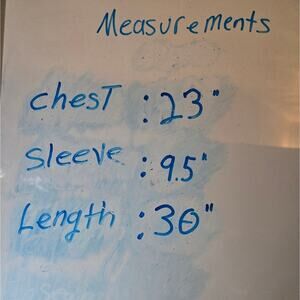 Measurements
chest : 23"
Sleeve : 9.5"
Length : 30"